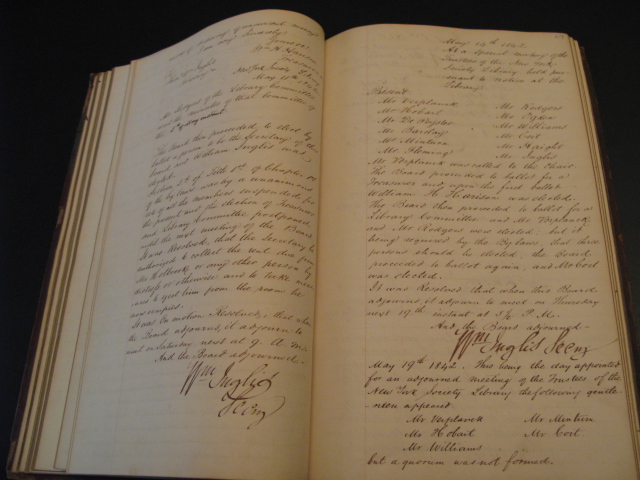 Yours
Wm H. Harison
Treasurer
New York Society Library
May 11th 1842
Mr Rodgers of the Library Committee
read the minutes of that Committee of
The Board then proceeded to elect by
ballot a person to be the Secretary of this
board and William Inglis was
elected.
Section 5th of Title 1st of Chapter
of the by laws was by a unanimous
vote of all the members suspended for
the present and the election of Treasurer
and Library Committee postponed
until the next meeting of the Board
It was Resolved, that the Secretary be
authorized to collect the rent due from
Mr Holbrook or any other person by
distress or otherwise and to take mea
sures to get him from the room he
now occupies.
It was on motion Resolved, that when
the Board adjourns, it adjourn to
meet on Saturday next at 9 A. M.
And the Board adjourned
Wm Inglis
Secy
May 14th 1842.
At a special meeting of the
Trustees of the New York
Society Library held pur-
suant to notice at the
Library
Present
Mr Verplanck Mr Rodgers
Mr Hobart Mr Ogden
Mr De Peyster Mr Williams
Mr Barclay Mr Coit
Mr Minturn Mr Haight
Mr Fleming Mr Inglis
Mr Verplanck was called to the Chair.
The Board proceeded to ballot for a
Treasurer and upon the first ballot
William H. Harison was elected.
The Board then proceeded to ballot for a
Library Committee and Mr Verplanck
and Mr Rodgers were elected, but it
being required by the By laws, that three
persons should be elected, the Board
proceeded to ballot again, and Mr Coit
was elected.
It was Resolved that when this Board
adjourns, it adjourn to meet on Thursday
next 19th instant at P. M.
And the Board adjourned
Wm Inglis Secy
May 19th 1842. This being the day appointed
for an adjourned meeting of the Trustees of the
New York Society Library the following gentle-
men appeared
Mr Verplanck Mr Minturn
Mr Hobart Mr Coit
Mr Williams
but a quorum was not formed.